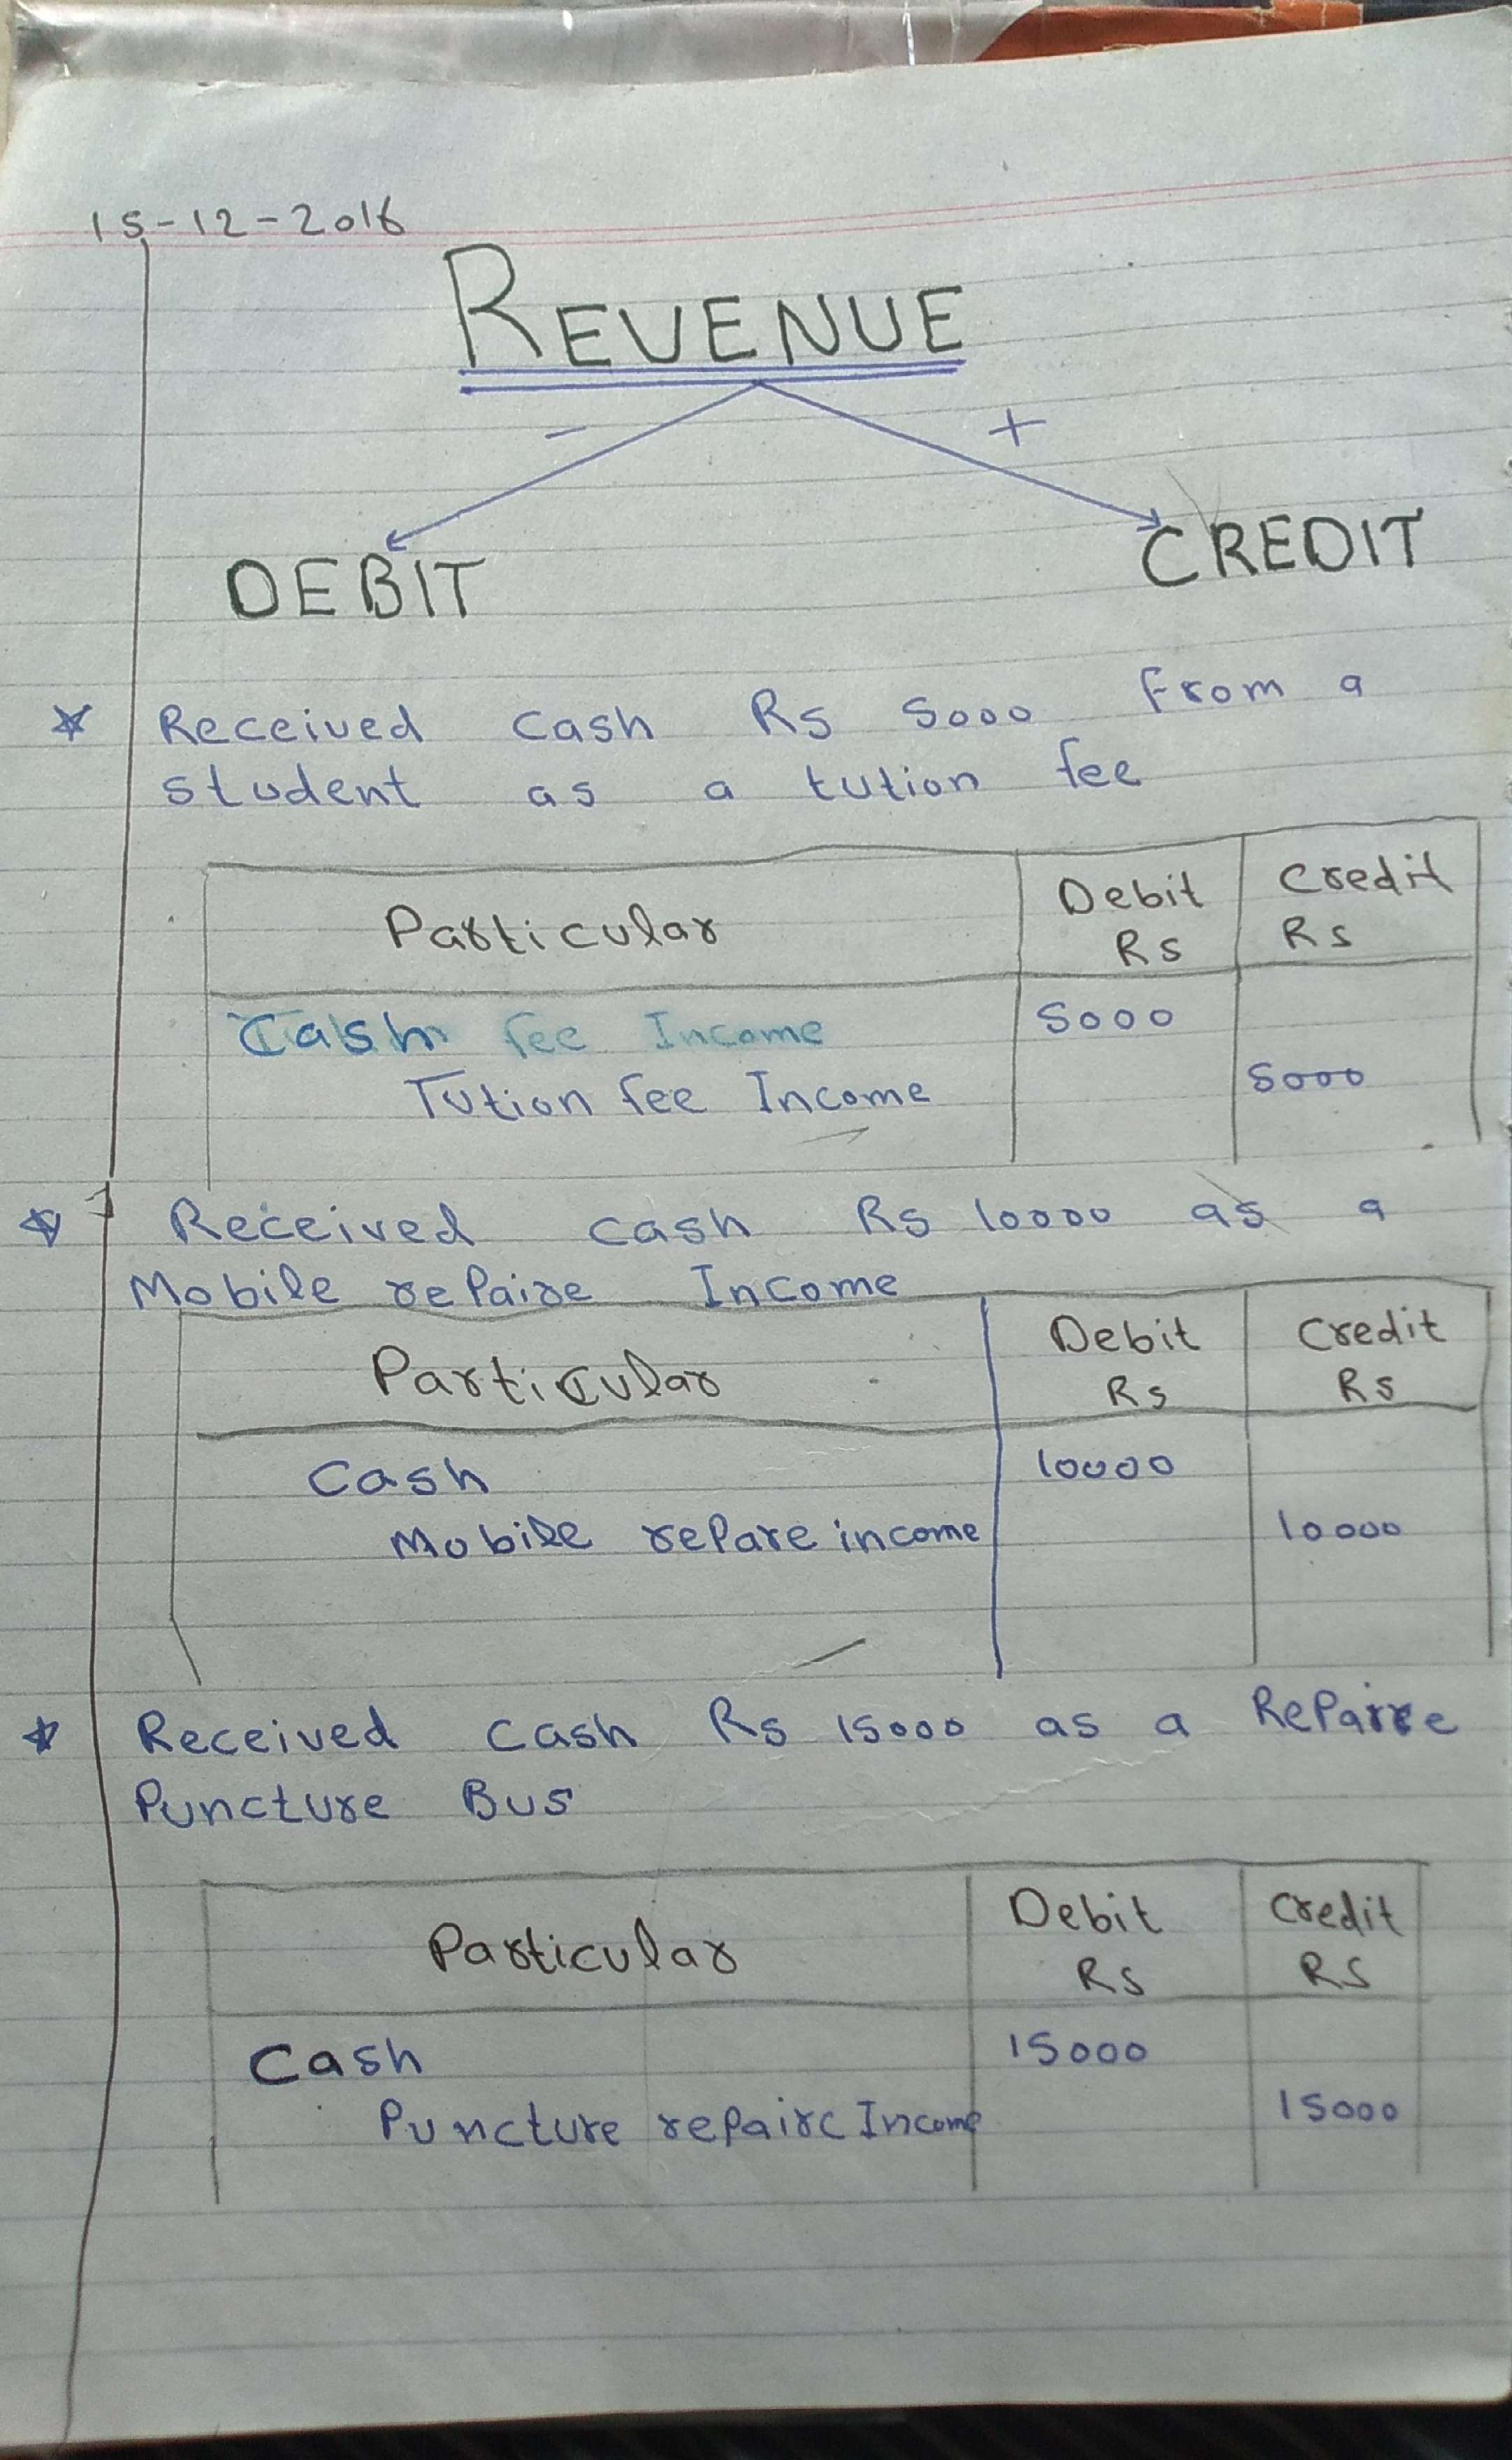 15-12-2016
REVENUE
- +
DEBIT CREDIT
Received cash Rs 5000 from a
student as a tution fee
Particular Debit Rs Credit Rs
Cash fee Income 5000
Tution fee Income 5000
Received cash Rs 10000 as a
Mobile repaire Income
Particular Debit Rs Credit Rs
Cash 10000
Mobile repare income 10000
Received cash Rs 15000 as a Repaire
Puncture Bus
Particular Debit Rs Credit Rs
Cash 15000
Puncture repaire Income 15000